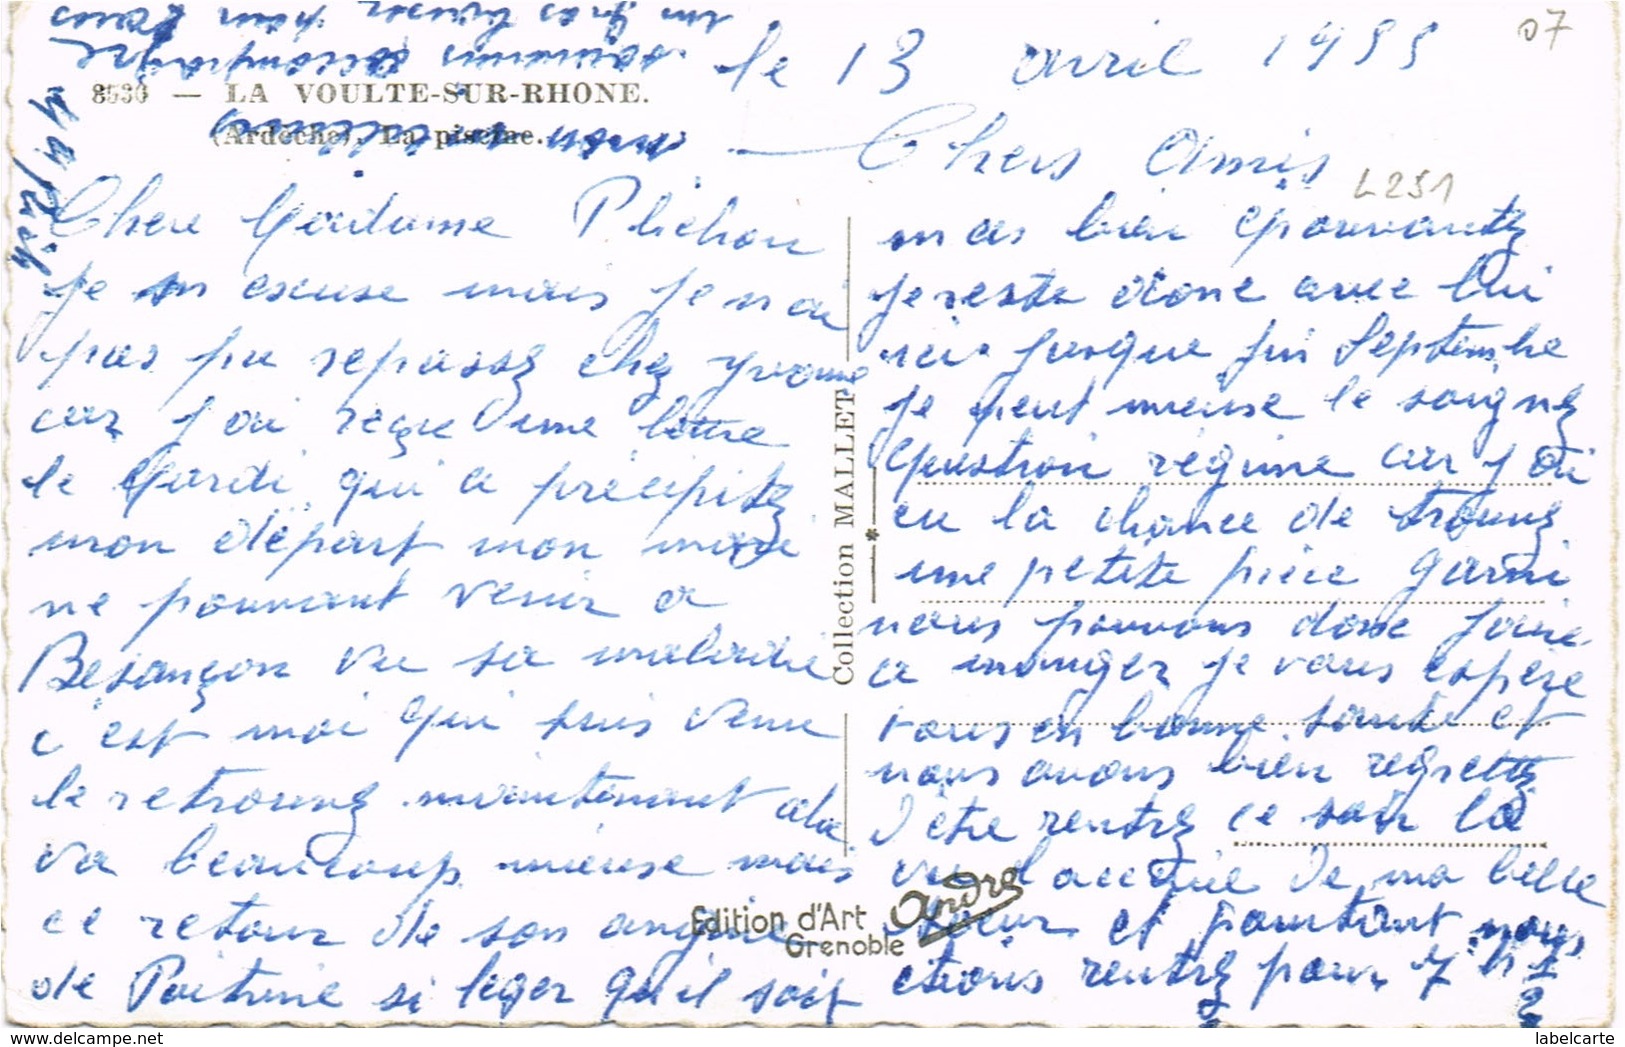 le 13 avril 1955
07
8530 — LA VOULTE-SUR-RHONE.
(Ardèche). La piscine.
Chers Amis
L251
Chere Madame Plichon
je m excuse mais je n ai
pas pu repassez chez Yvonne
car j ai reçue une lettre
le Mardi qui a précipitez
mon départ mon mari
ne pouvant venir a
Besançon vu sa maladie
c'est moi qui suis venu
le retrouvez maintenant
va beaucoup mieuse mais
ce retour de son angine
de Poitrine si leger qu'il soit
m as bien épouvantez
je reste donc avec lui
ici jusque fin Septembre
je peut mieuse le soignez
question régime car j ai
eu la chance de trouvez
une petite pièce garni
nous pouvons donc faire
a manger je vous espere
vous en bonne santé et
nous avons bien regrettez
d'être rentrez ce soir là
vu l accueil de ma belle
soeur et pourtant nous
etions rentrez pour 7 h 1/2
Collection MALLET
*
Edition d'Art
Grenoble
André
nous
accompagne
un gros baiser pour tous
www.delcampe.net
labelcarte